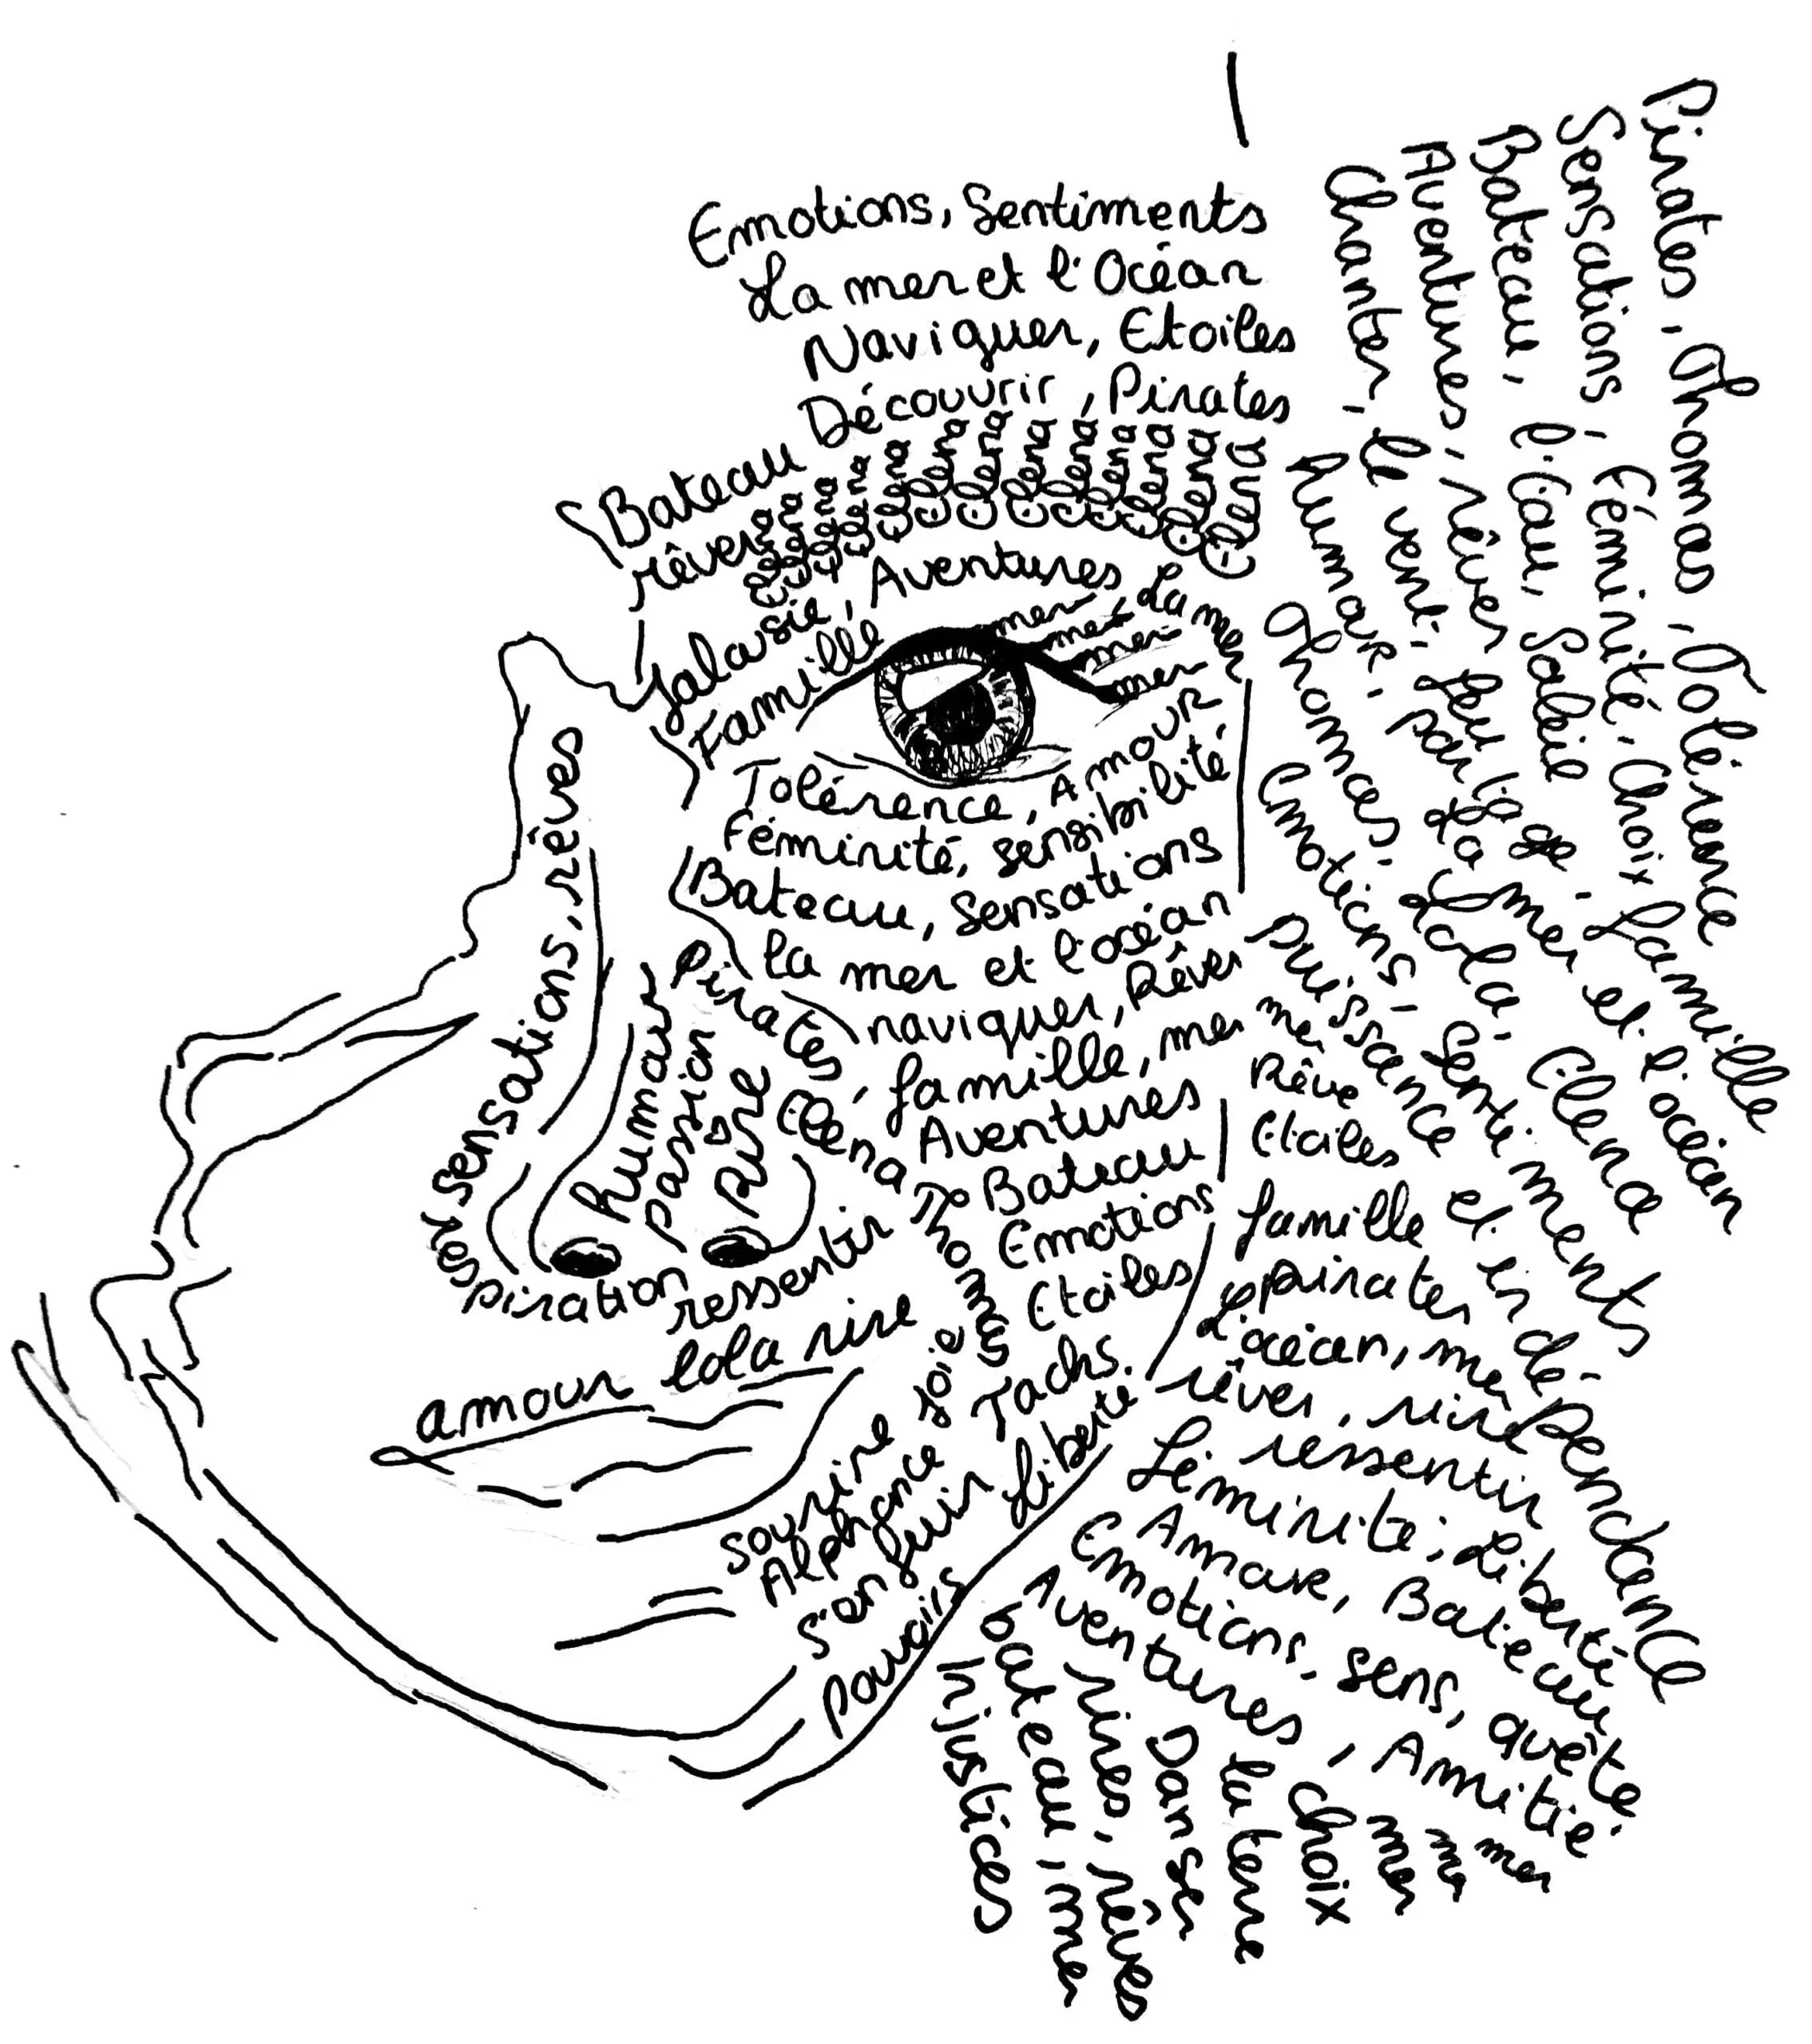 Emotions, Sentiments
La mer et l'Océan
Naviguer, Etoiles
Découvrir, Pirates
Bateau
rêver
Jalousie, Aventures, La mer
mer
mer
mer
mer
Famille
Tolérence, Amour
Féminité, sensibilité
Bateau, Sensations
la mer et l'océan
naviguer, Rêver
famille, mer
Aventures
Bateau
Emotions
Etoiles
Tachs.
Pirates, Eléna Thomas
sensations, rêves
humour
passion
respiration
ressentir
amour lola rire
sourire joie
Alphonce
s'enfuir liberté
Pouvoirs
Pirates, Thomas, Tolérence
Sensations, féminité, Choix famille
Bateau, l'eau, Soleil
et l'océan
Aventures, rêver
La mer
Chanter, le vent,
Lola, Elena
humour,
Thomas,
Emotions, Sentiments
Puissance et indépendance
mer
Rêve
Etoiles
famille
pirates
L'océan, mer
rêver, rire
ressentir
féminité, Liberté
Amour, Bateau
Emotions, sens, quête
Aventures, Amitié
mer
mer
mer
choix
la terre
Danser
rires, rêves
bateau, mer
injustices